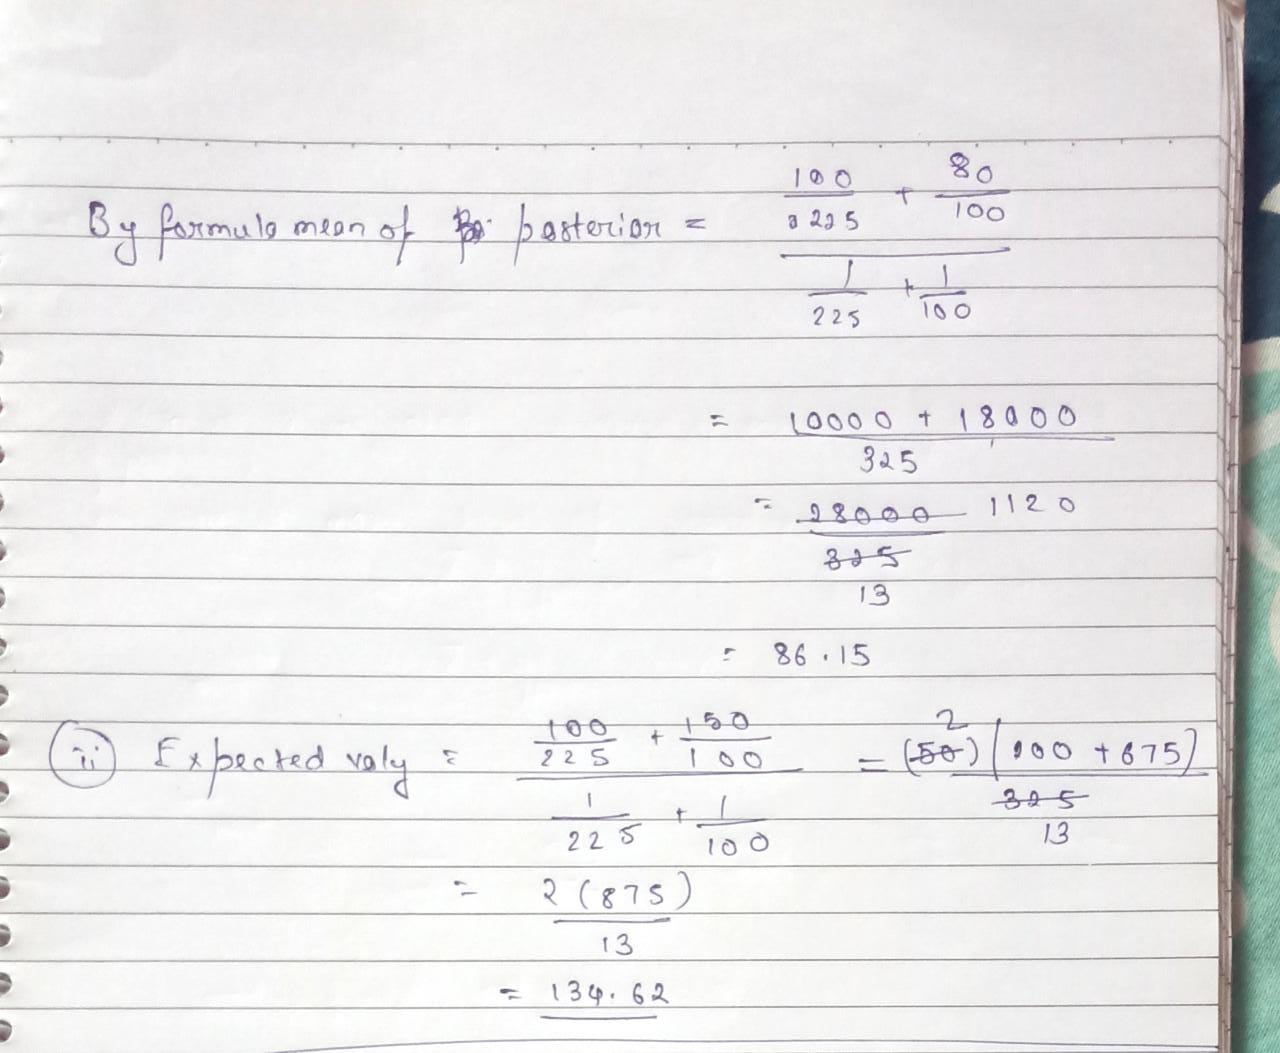 By formula mean of posterior = (100/225 + 80/100) / (1/225 + 1/100)
= (10000 + 18000) / 325
= 28000 / 325 1120 / 13
= 86.15
(ii) Expected valy = (100/225 + 150/100) / (1/225 + 1/100) = (50) 2 (200 + 675) / 325 13
= 2 (875) / 13
= 134.62